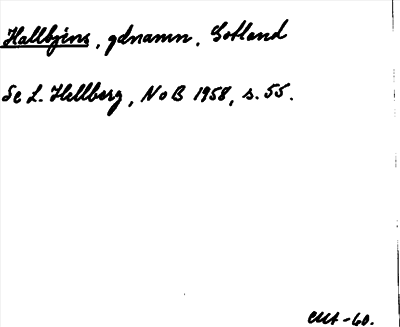 Hallbjäns, gdnamn, Gotland
Se L. Hellberg, NoB 1958, s. 55.
-60.